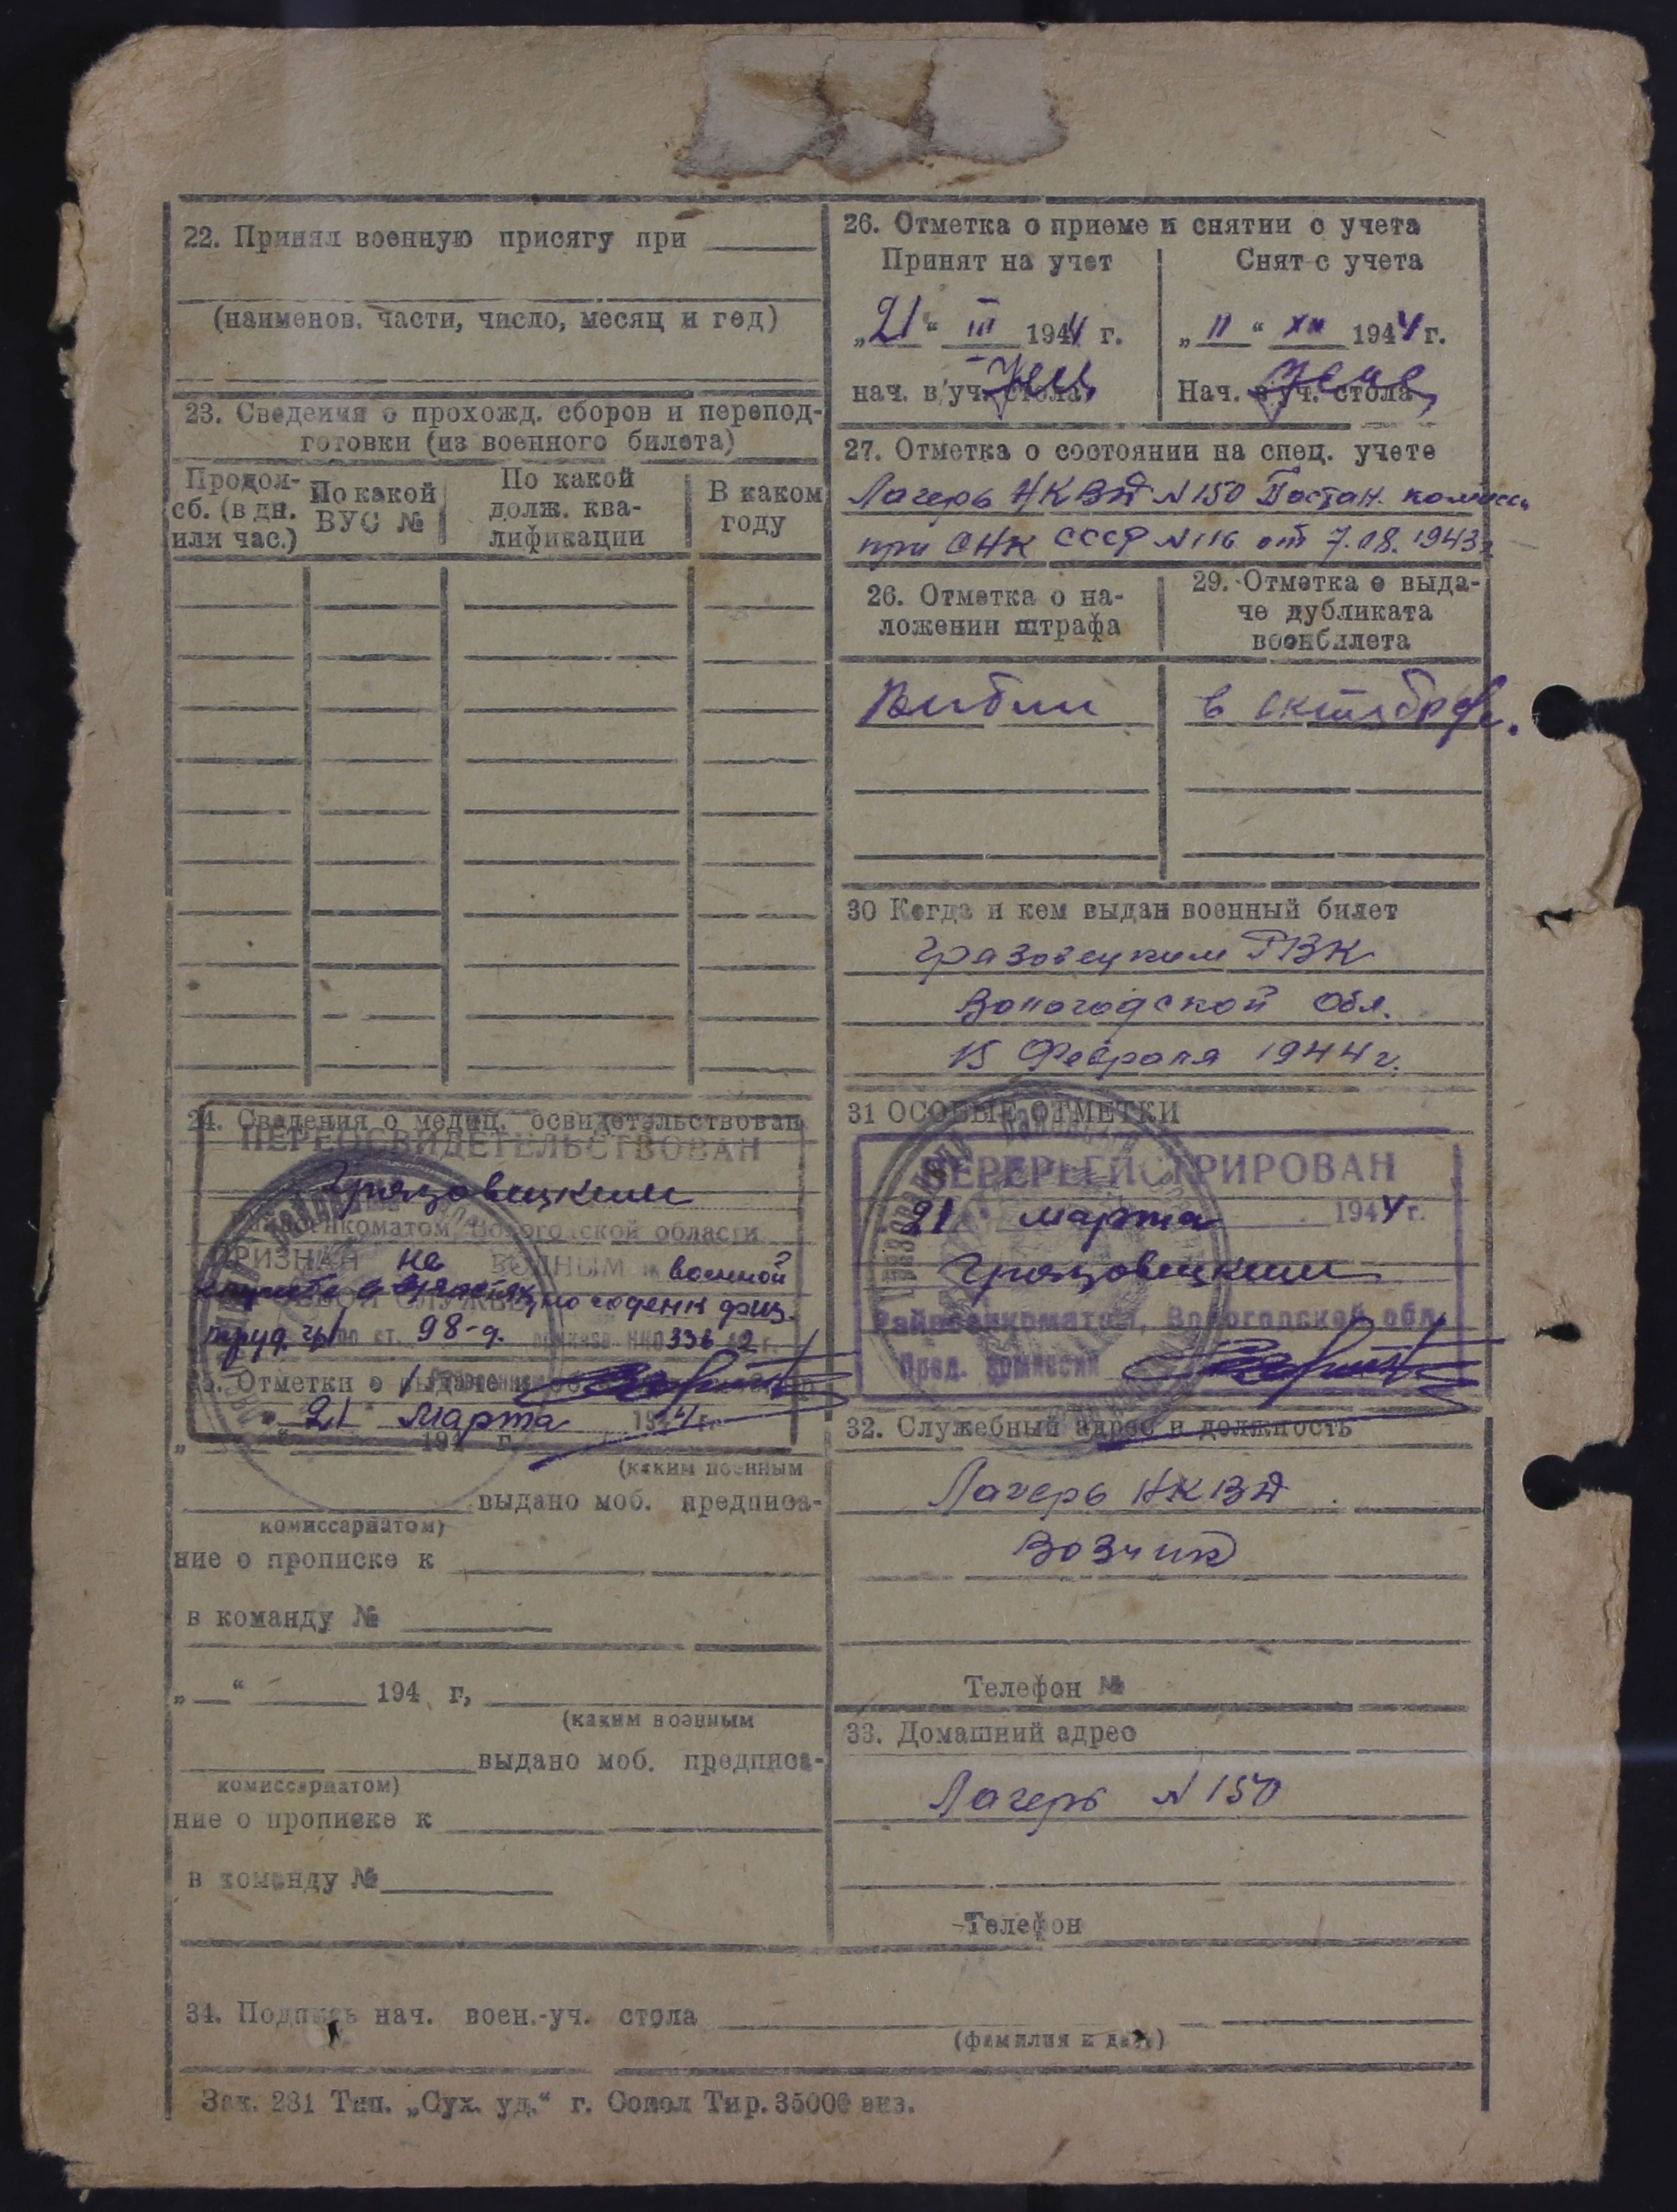 22. Принял военную присягу при
(наименов. части, число, месяц и год)
23. Сведения о прохожд. сборов и перепод-
готовки (из военного билета)
Продол-
сб. (в дн.
или час.)
По какой
ВУС №
По какой
долж. ква-
лификации
В каком
году
24. Сведения о медиц. освидетельствован
ПЕРЕОСВИДЕТЕЛЬСТВОВАН
Грязовецким
Райвоенкоматом Вологодской области
ПРИЗНАН не ГОДНЫМ к военной
службе
годен к физ.
труд. ст. 98-д. приказа НКО 336 42 г.
25. Отметки о выдаче
"21" Марта 1944 г.
„ “ 194 г.
(каким военным
выдано моб. предписа-
комиссариатом)
ние о прописке к
в команду №
„ “ 194 г,
(каким военным
выдано моб. предписа-
комиссариатом)
ние о прописке к
в команду №
26. Отметка о приеме и снятии с учета
Принят на учет
„21“ III 1944 г.
нач. в/уч. стола
Снят с учета
„11“ XII 1944 г.
Нач. в/уч. стола
27. Отметка о состоянии на спец. учете
Лагерь НКВД N 150 Постан. комисси
при СНК СССР N 116 от 7.08.1943 г.
26. Отметка о на-
ложении штрафа
29. Отметка о выда-
че дубликата
военбилета
Выбыл в октябре.
30 Когда и кем выдан военный билет
Грязовецким РВК
Вологодской Обл.
15 Февраля 1944 г.
31 ОСОБЫЕ ОТМЕТКИ
ПЕРЕРЕГИСТРИРОВАН
21 марта 1944 г.
Грязовецким
Райвоенкоматом, Вологодской обл.
Пред. комиссии
32. Служебный адрес и должность
Лагерь НКВД
Возчик
Телефон №
33. Домашний адрес
Лагерь N 150
Телефон
34. Подпись нач. воен.-уч. стола
(фамилия и дата)
Зак. 281 Тип. „Сух. уд.“ г. Сокол Тир. 35000 экз.